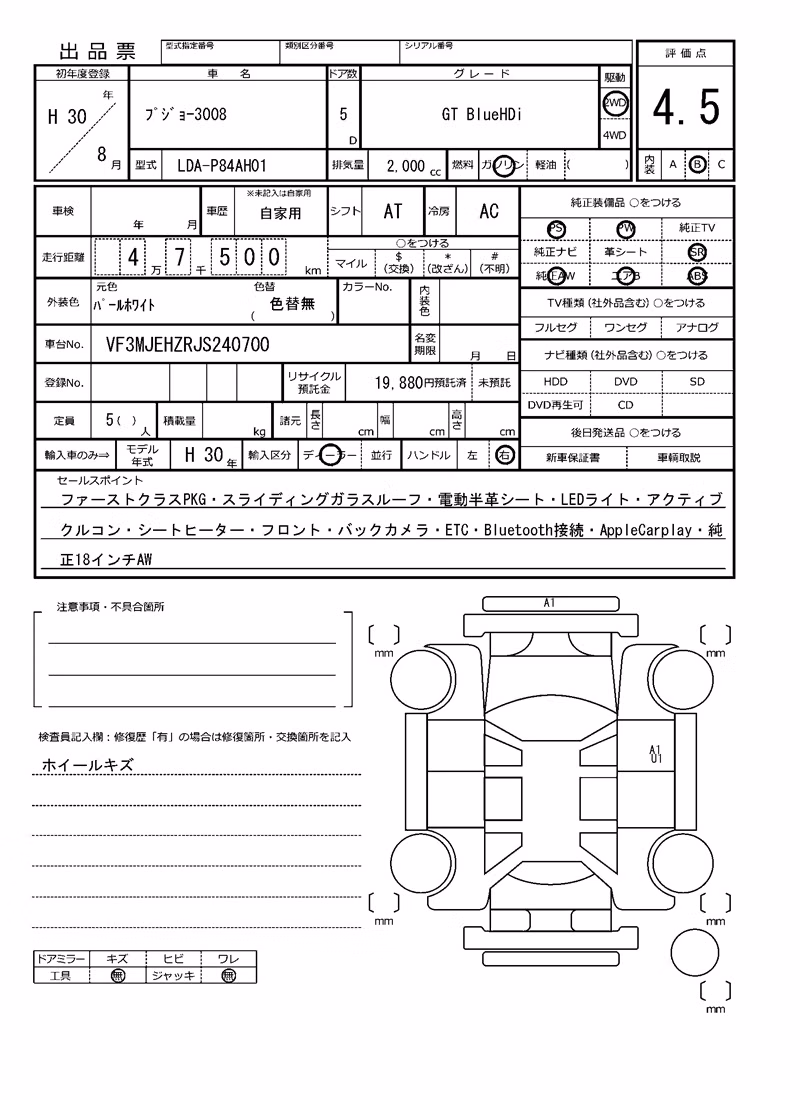 出品票
型式指定番号 類別区分番号 シリアル番号
評価点
初年度登録 車名 ドア数 グレード 駆動
H 30 年 8 月
プジョー3008 5 D GT BlueHDi
2WD
4WD
4.5
型式 LDA-P84AH01 排気量 2,000 cc 燃料 ガソリン 軽油 ( )
内装 A B C
車検 年 月 車歴 ※未記入は自家用 自家用 シフト AT 冷房 AC
純正装備品 ○をつける
PS PW 純正TV
走行距離 4 万 7 千 5 0 0 km
○をつける
マイル $(交換) *(改ざん) #(不明)
純正ナビ 革シート SR
純正AW エアB ABS
外装色 元色 パールホワイト 色替 ( 色替無 ) カラーNo. 内装色
TV種類(社外品含む)○をつける
フルセグ ワンセグ アナログ
車台No. VF3MJEHZRJS240700 名変期限 月 日
ナビ種類(社外品含む)○をつける
HDD DVD SD
DVD再生可 CD
登録No. リサイクル預託金 19,880円預託済 未預託
定員 5( )人 積載量 kg 諸元 長さ cm 幅 cm 高さ cm
後日発送品 ○をつける
新車保証書 車輌取説
輸入車のみ⇒ モデル年式 H 30 年 輸入区分 ディーラー 並行 ハンドル 左 右
セールスポイント
ファーストクラスPKG・スライディングガラスルーフ・電動半革シート・LEDライト・アクティブ
クルコン・シートヒーター・フロント・バックカメラ・ETC・Bluetooth接続・AppleCarplay・純
正18インチAW
注意事項・不具合箇所
検査員記入欄：修復歴「有」の場合は修復箇所・交換箇所を記入
ホイールキズ
ドアミラー キズ ヒビ ワレ
工具 無 ジャッキ 無
A1
mm mm
A1
U1
mm mm
mm